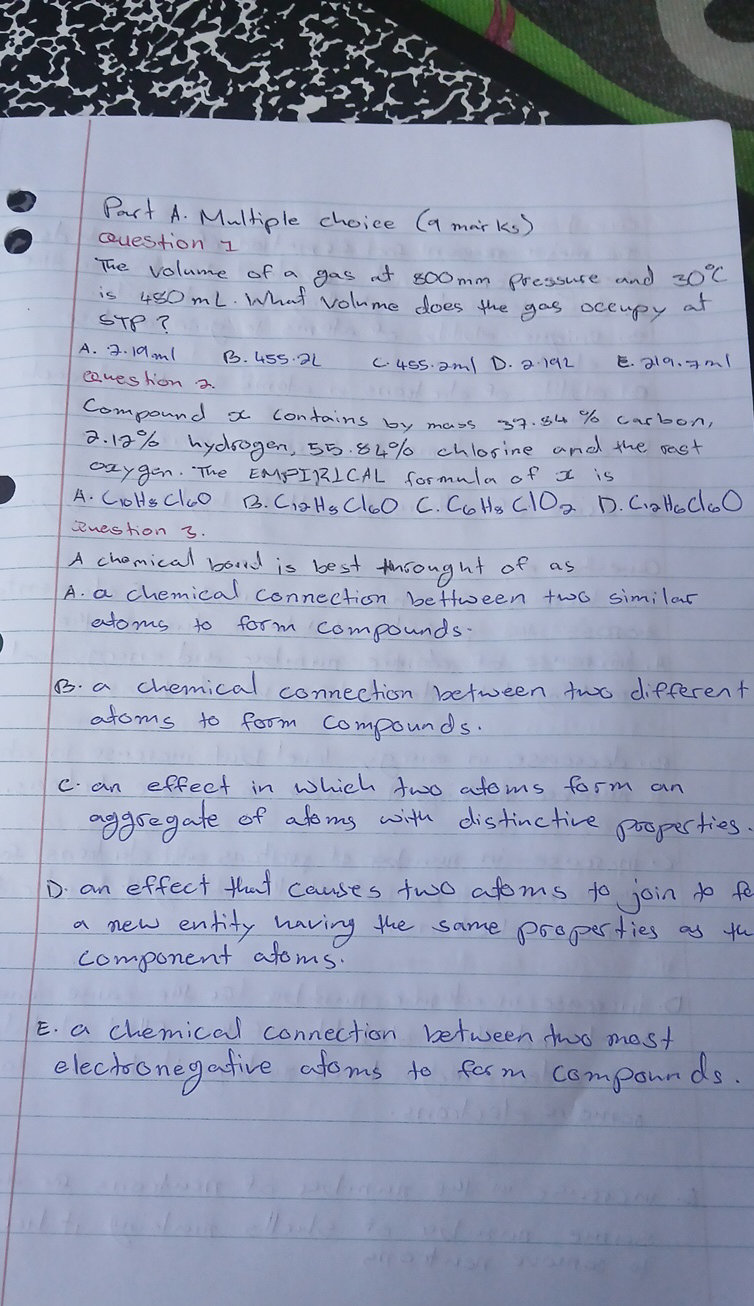 Part A. Multiple choice (9 marks)
Question 1
The volume of a gas at 800mm pressure and 30°C
is 480 mL. What volume does the gas occupy at
STP?
A. 2.19ml B. 455.2L C. 455.2ml D. 2.19L E. 219.7ml
Question 2.
Compound x contains by mass 37.84% carbon,
2.12% hydrogen, 55.84% chlorine and the rest
oxygen. The EMPIRICAL formula of x is
A. C10H8Cl6O B. C12H8Cl6O C. C6H8ClO2 D. C12H6Cl6O
Question 3.
A chemical bond is best throught of as
A. a chemical connection bettween two similar
atoms to form compounds.
B. a chemical connection between two different
atoms to form compounds.
C. an effect in which two atoms form an
aggregate of atoms with distinctive properties.
D. an effect that causes two atoms to join to fo
a new entity having the same properties as th
component atoms.
E. a chemical connection between two most
electronegative atoms to form compounds.